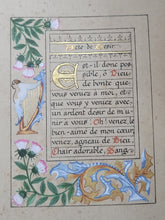 Acte de Désir
Est-il donc pos-
sible, ô Dieu
de bonté que
vous venez à moi, et
que vous y venez avec
un ardent désir de m'u-
nir à vous! Oh! venez le
bien-aimé de mon cœur,
venez, agneau de Dieu,
Chair adorable, Sang